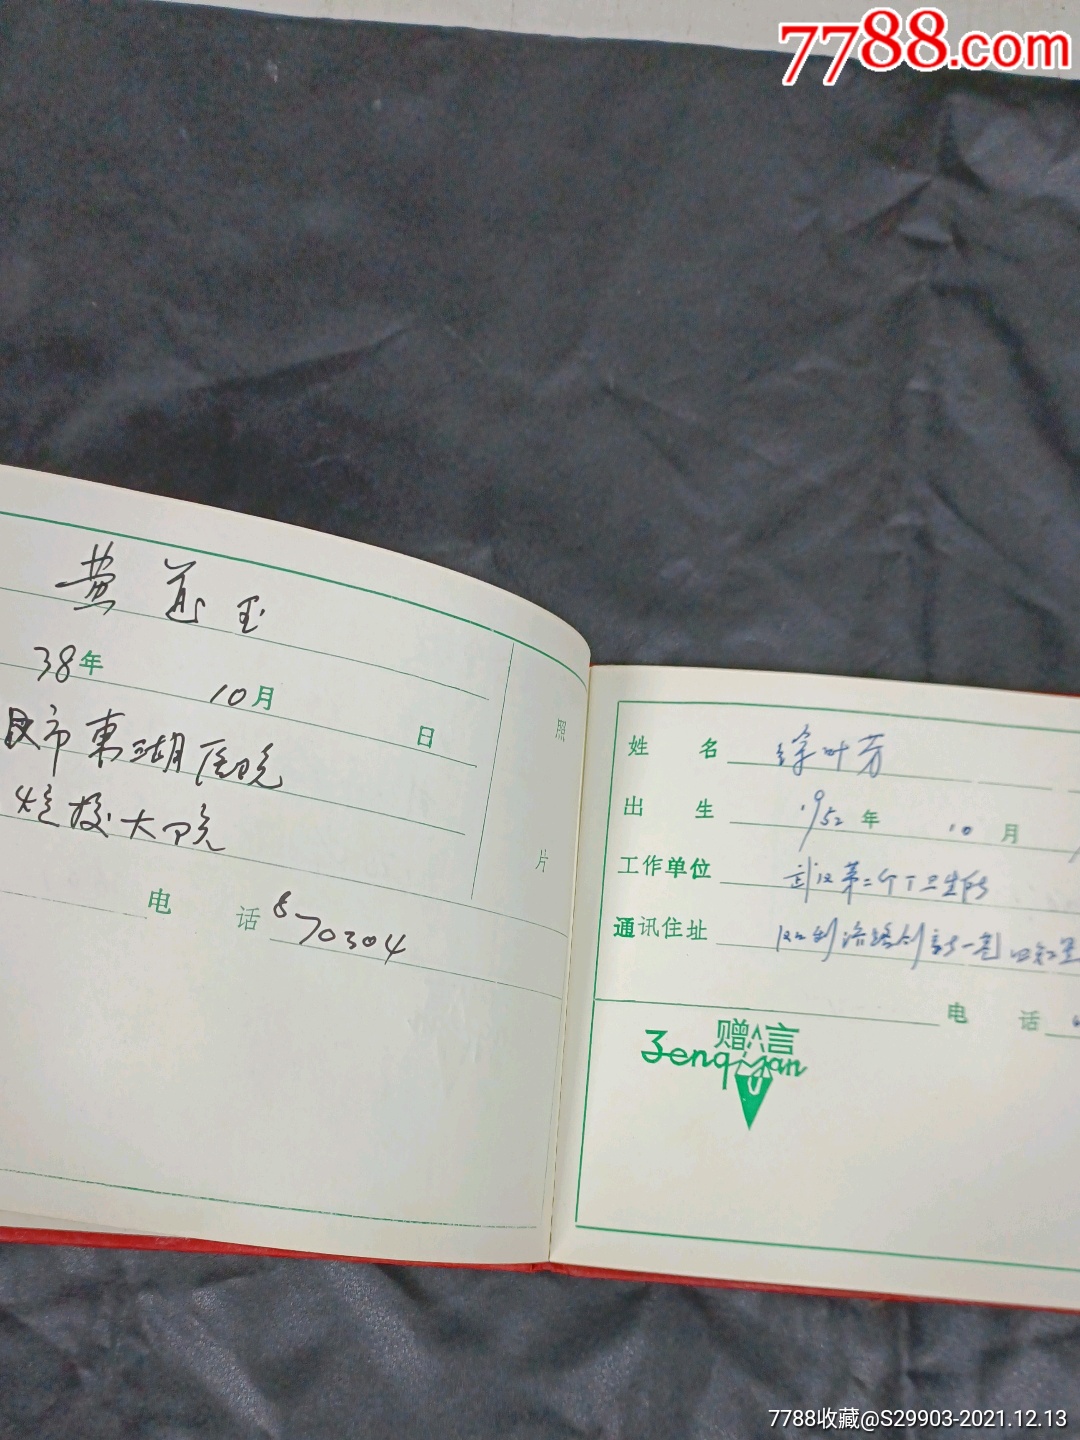 7788.com
黄道玉
38年 10月 日
汉市東湖医院
大院
照
片
电 话 870304
姓 名 徐叶芳
出 生 1952年 10月
工作单位 武汉第二 卫生所
通讯住址 汉口利济路
电 话
赠言
Zenqijan
7788收藏@S29903-2021.12.13